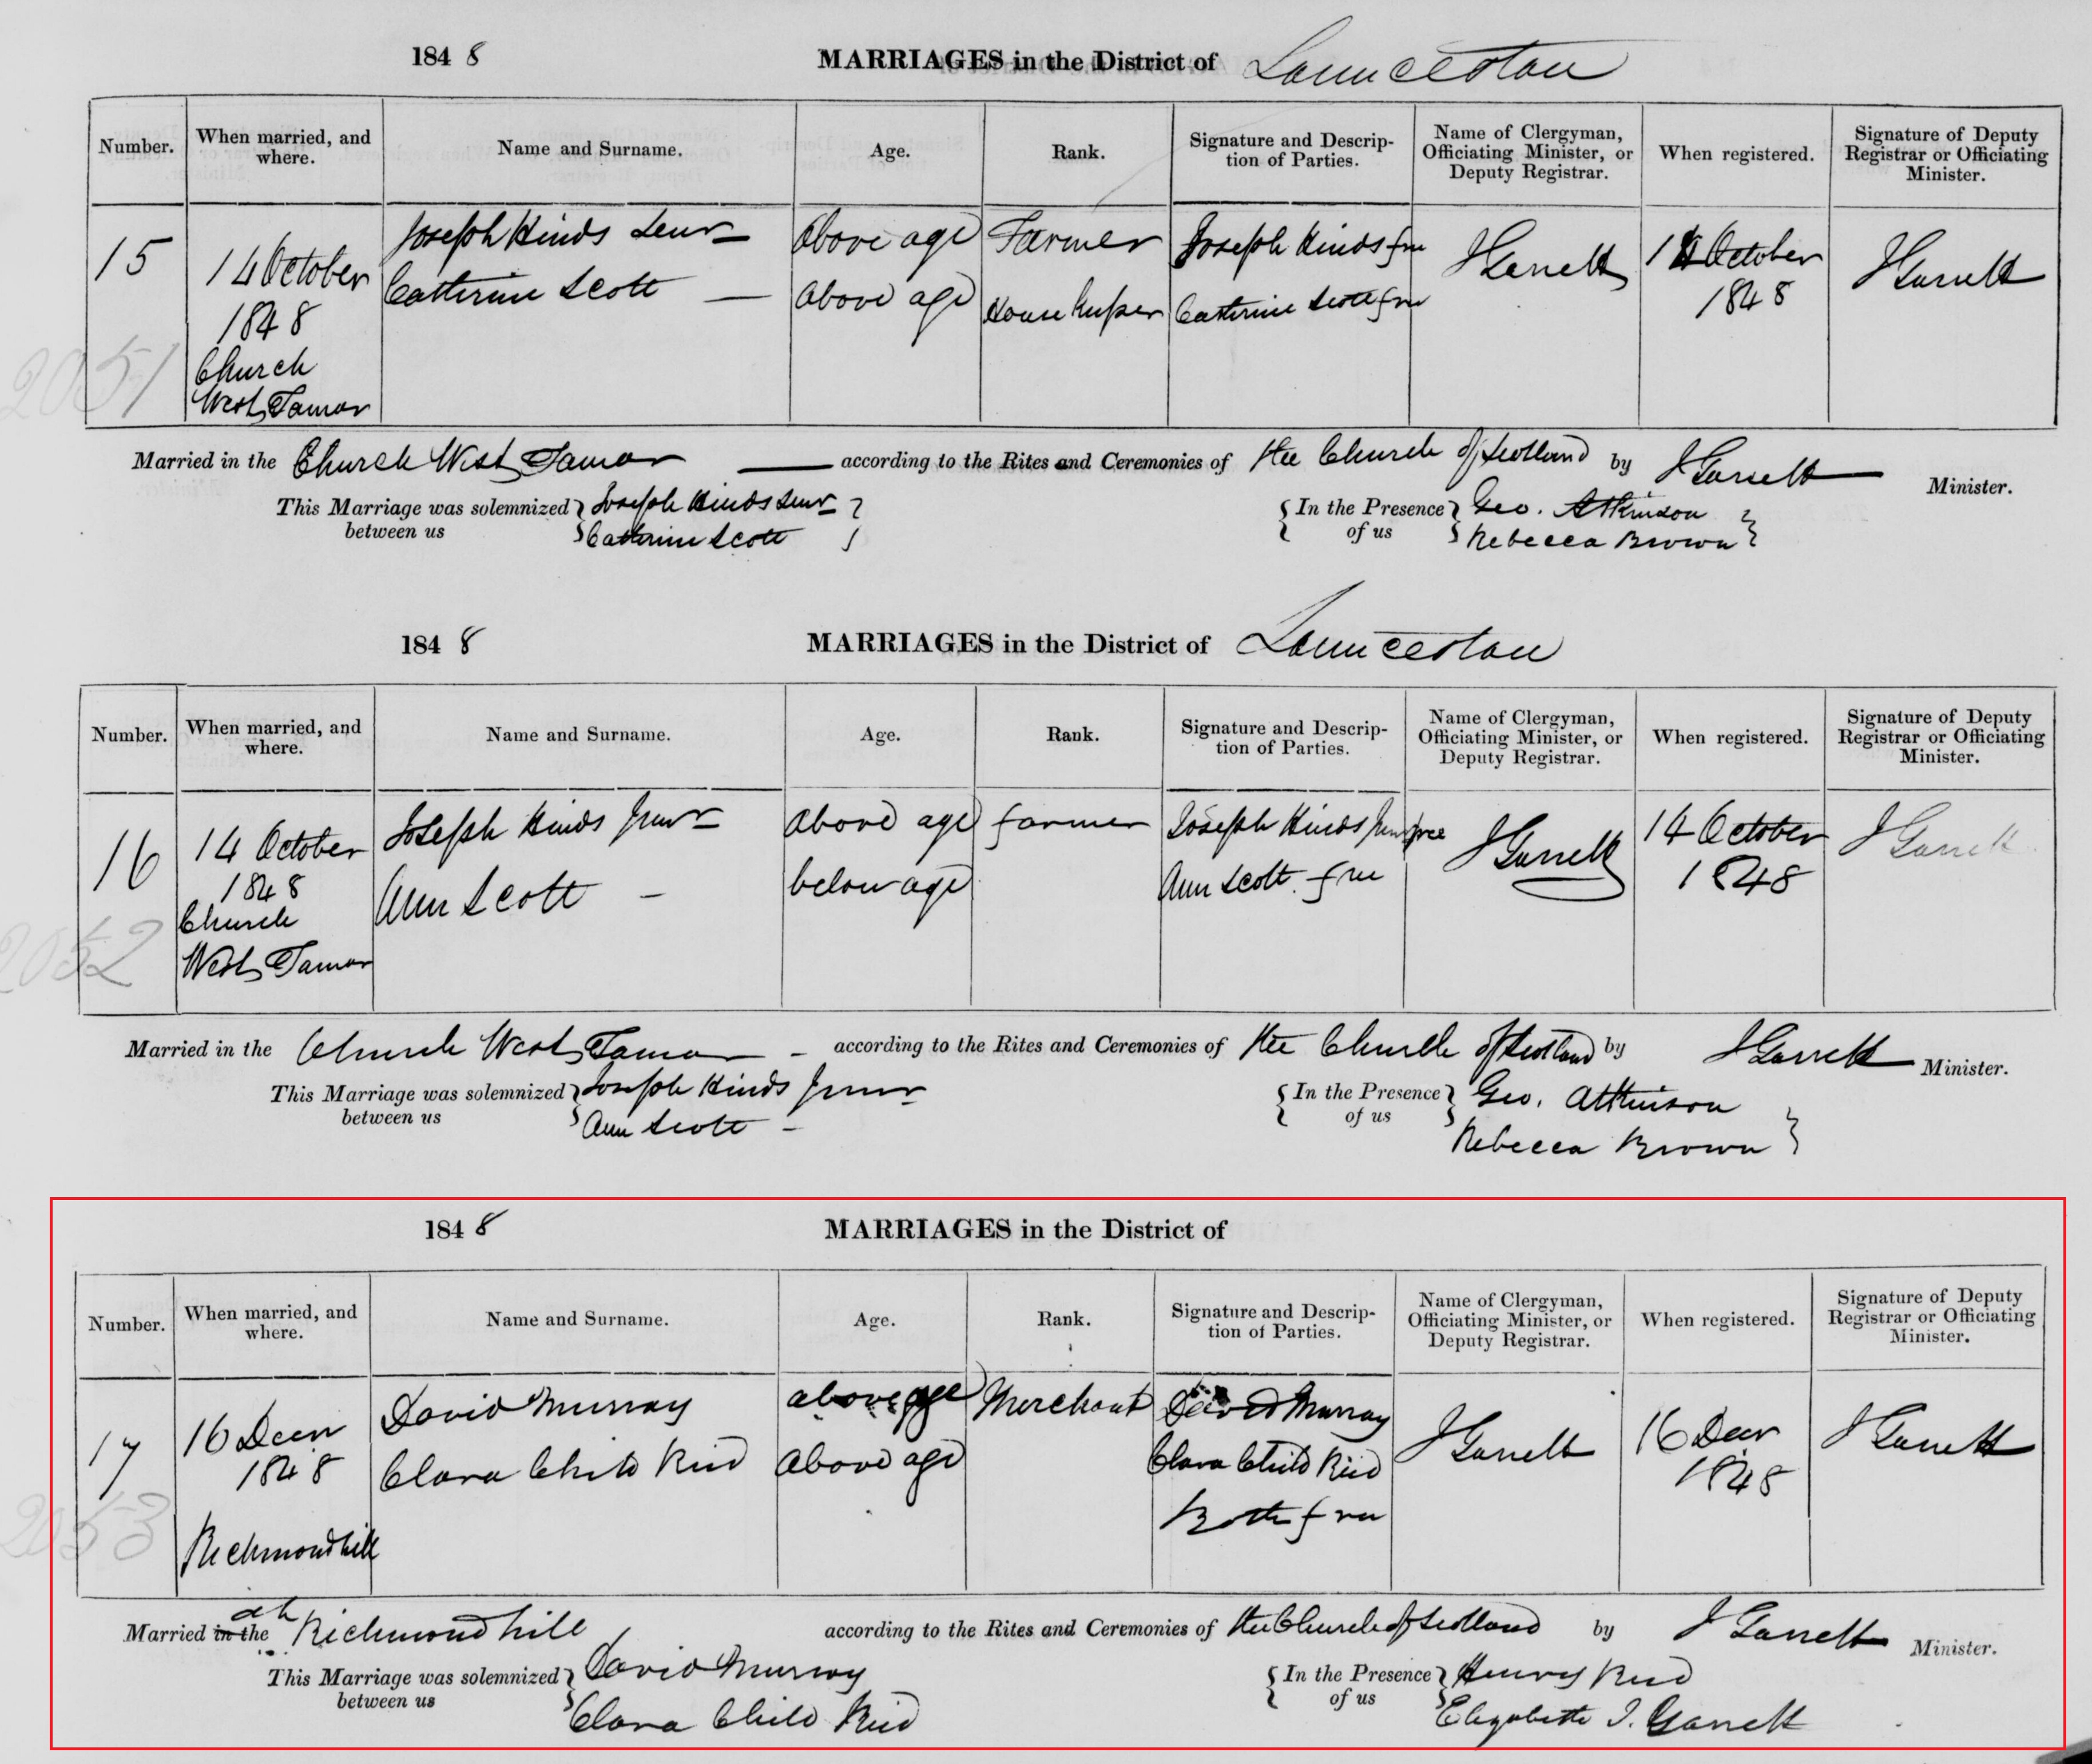 1848 MARRIAGES in the District of Launceston
Number. When married, and where. Name and Surname. Age. Rank. Signature and Description of Parties. Name of Clergyman, Officiating Minister, or Deputy Registrar. When registered. Signature of Deputy Registrar or Officiating Minister.
15 14 October 1848 Church West Tamar Joseph Hinds Senr Above age Farmer Joseph Hinds free J Garrett 14 October 1848 J Garrett
Catherine Scott — Above age House keeper Catherine Scott free
2051
Married in the Church West Tamar — according to the Rites and Ceremonies of the Church of Scotland by J Garrett Minister.
This Marriage was solemnized between us { Joseph Hinds Senr } { In the Presence of us } Geo. Atkinson }
Catherine Scott Rebecca Brown
1848 MARRIAGES in the District of Launceston
Number. When married, and where. Name and Surname. Age. Rank. Signature and Description of Parties. Name of Clergyman, Officiating Minister, or Deputy Registrar. When registered. Signature of Deputy Registrar or Officiating Minister.
16 14 October 1848 Church West Tamar Joseph Hinds Junr above age farmer Joseph Hinds Junr free J Garrett 14 October 1848 J Garrett
Ann Scott - below age Ann Scott free
2052
Married in the Church West Tamar - according to the Rites and Ceremonies of the Church of Scotland by J Garrett Minister.
This Marriage was solemnized between us { Joseph Hinds Junr { In the Presence of us } Geo. Atkinson }
Ann Scott - Rebecca Brown
1848 MARRIAGES in the District of
Number. When married, and where. Name and Surname. Age. Rank. Signature and Description of Parties. Name of Clergyman, Officiating Minister, or Deputy Registrar. When registered. Signature of Deputy Registrar or Officiating Minister.
17 16 Decr 1848 Richmondhill David Murray above age Merchant David Murray J Garrett 16 Decr 1848 J Garrett
Clara Child Reid above age Clara Child Reid
Both free
2053
Married in the at Richmond hill according to the Rites and Ceremonies of the Church of Scotland by J Garrett Minister.
This Marriage was solemnized between us { David Murray { In the Presence of us } Henry Reid
Clara Child Reid Elizabeth I. Garrett